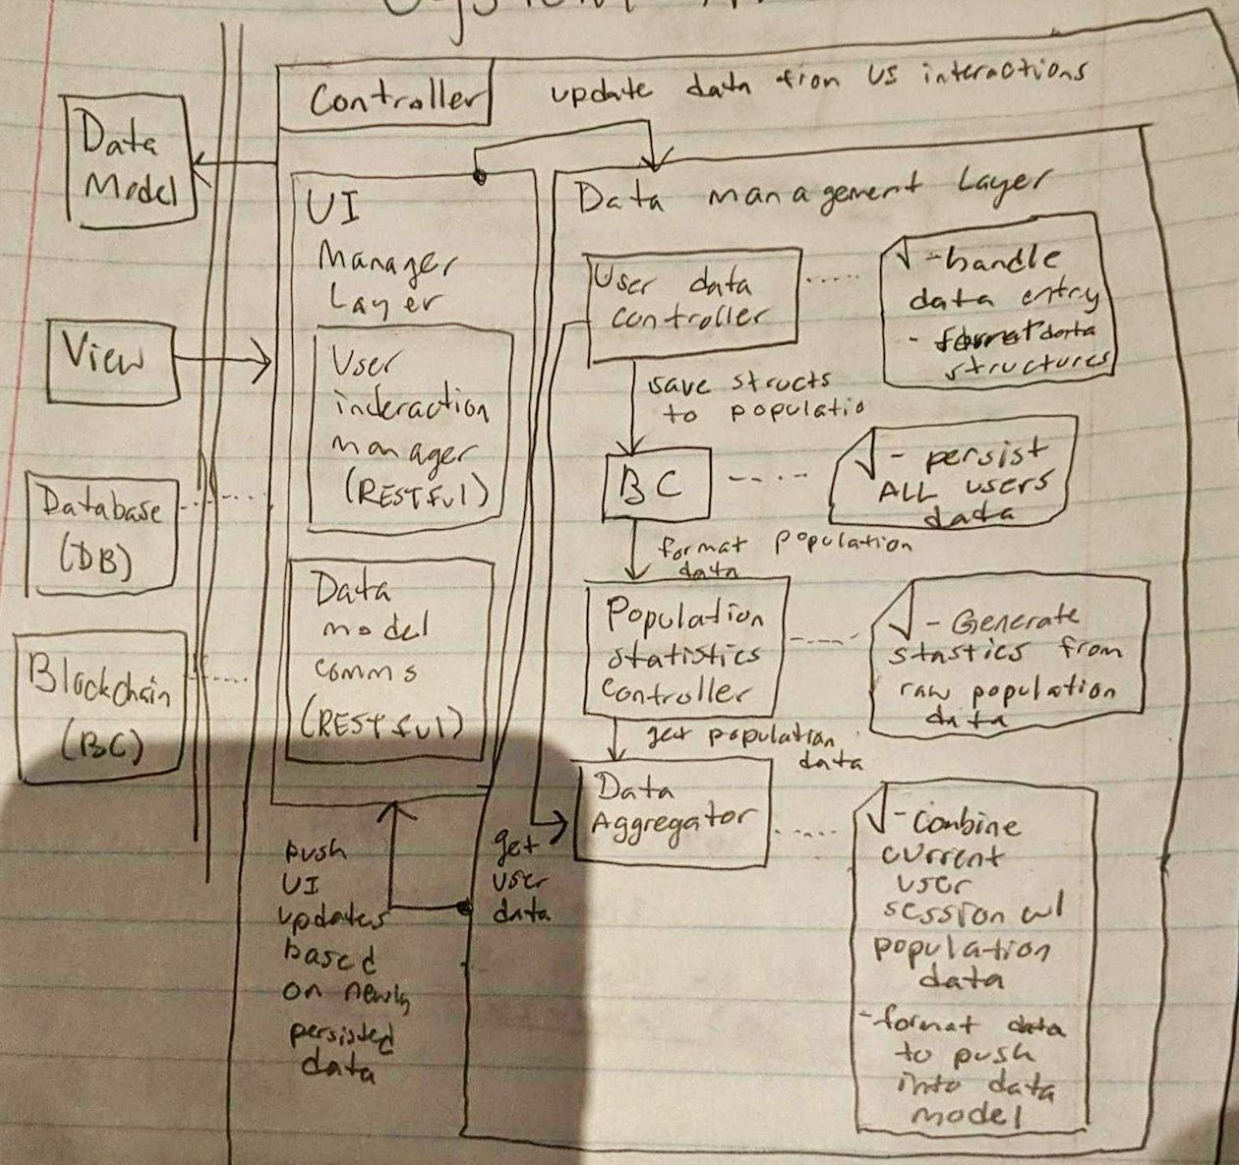 System
Controller
update data from US interactions
Data
Model
View
Database
(DB)
Blockchain
(BC)
UI
Manager
Layer
User
inderaction
manager
(RESTful)
Data
model
comms
(RESTful)
push
UI
updates
based
on newly
persisted
data
get
user
data
Data management Layer
User data
controller
-handle
data entry
- format data
structures
save structs
to populatio
BC
- persist
ALL users
data
format population
data
Population
statistics
Controller
- Generate
stastics from
raw population
data
get population
data
Data
Aggregator
-Combine
current
user
session w/
population
data
-format data
to push
into data
model